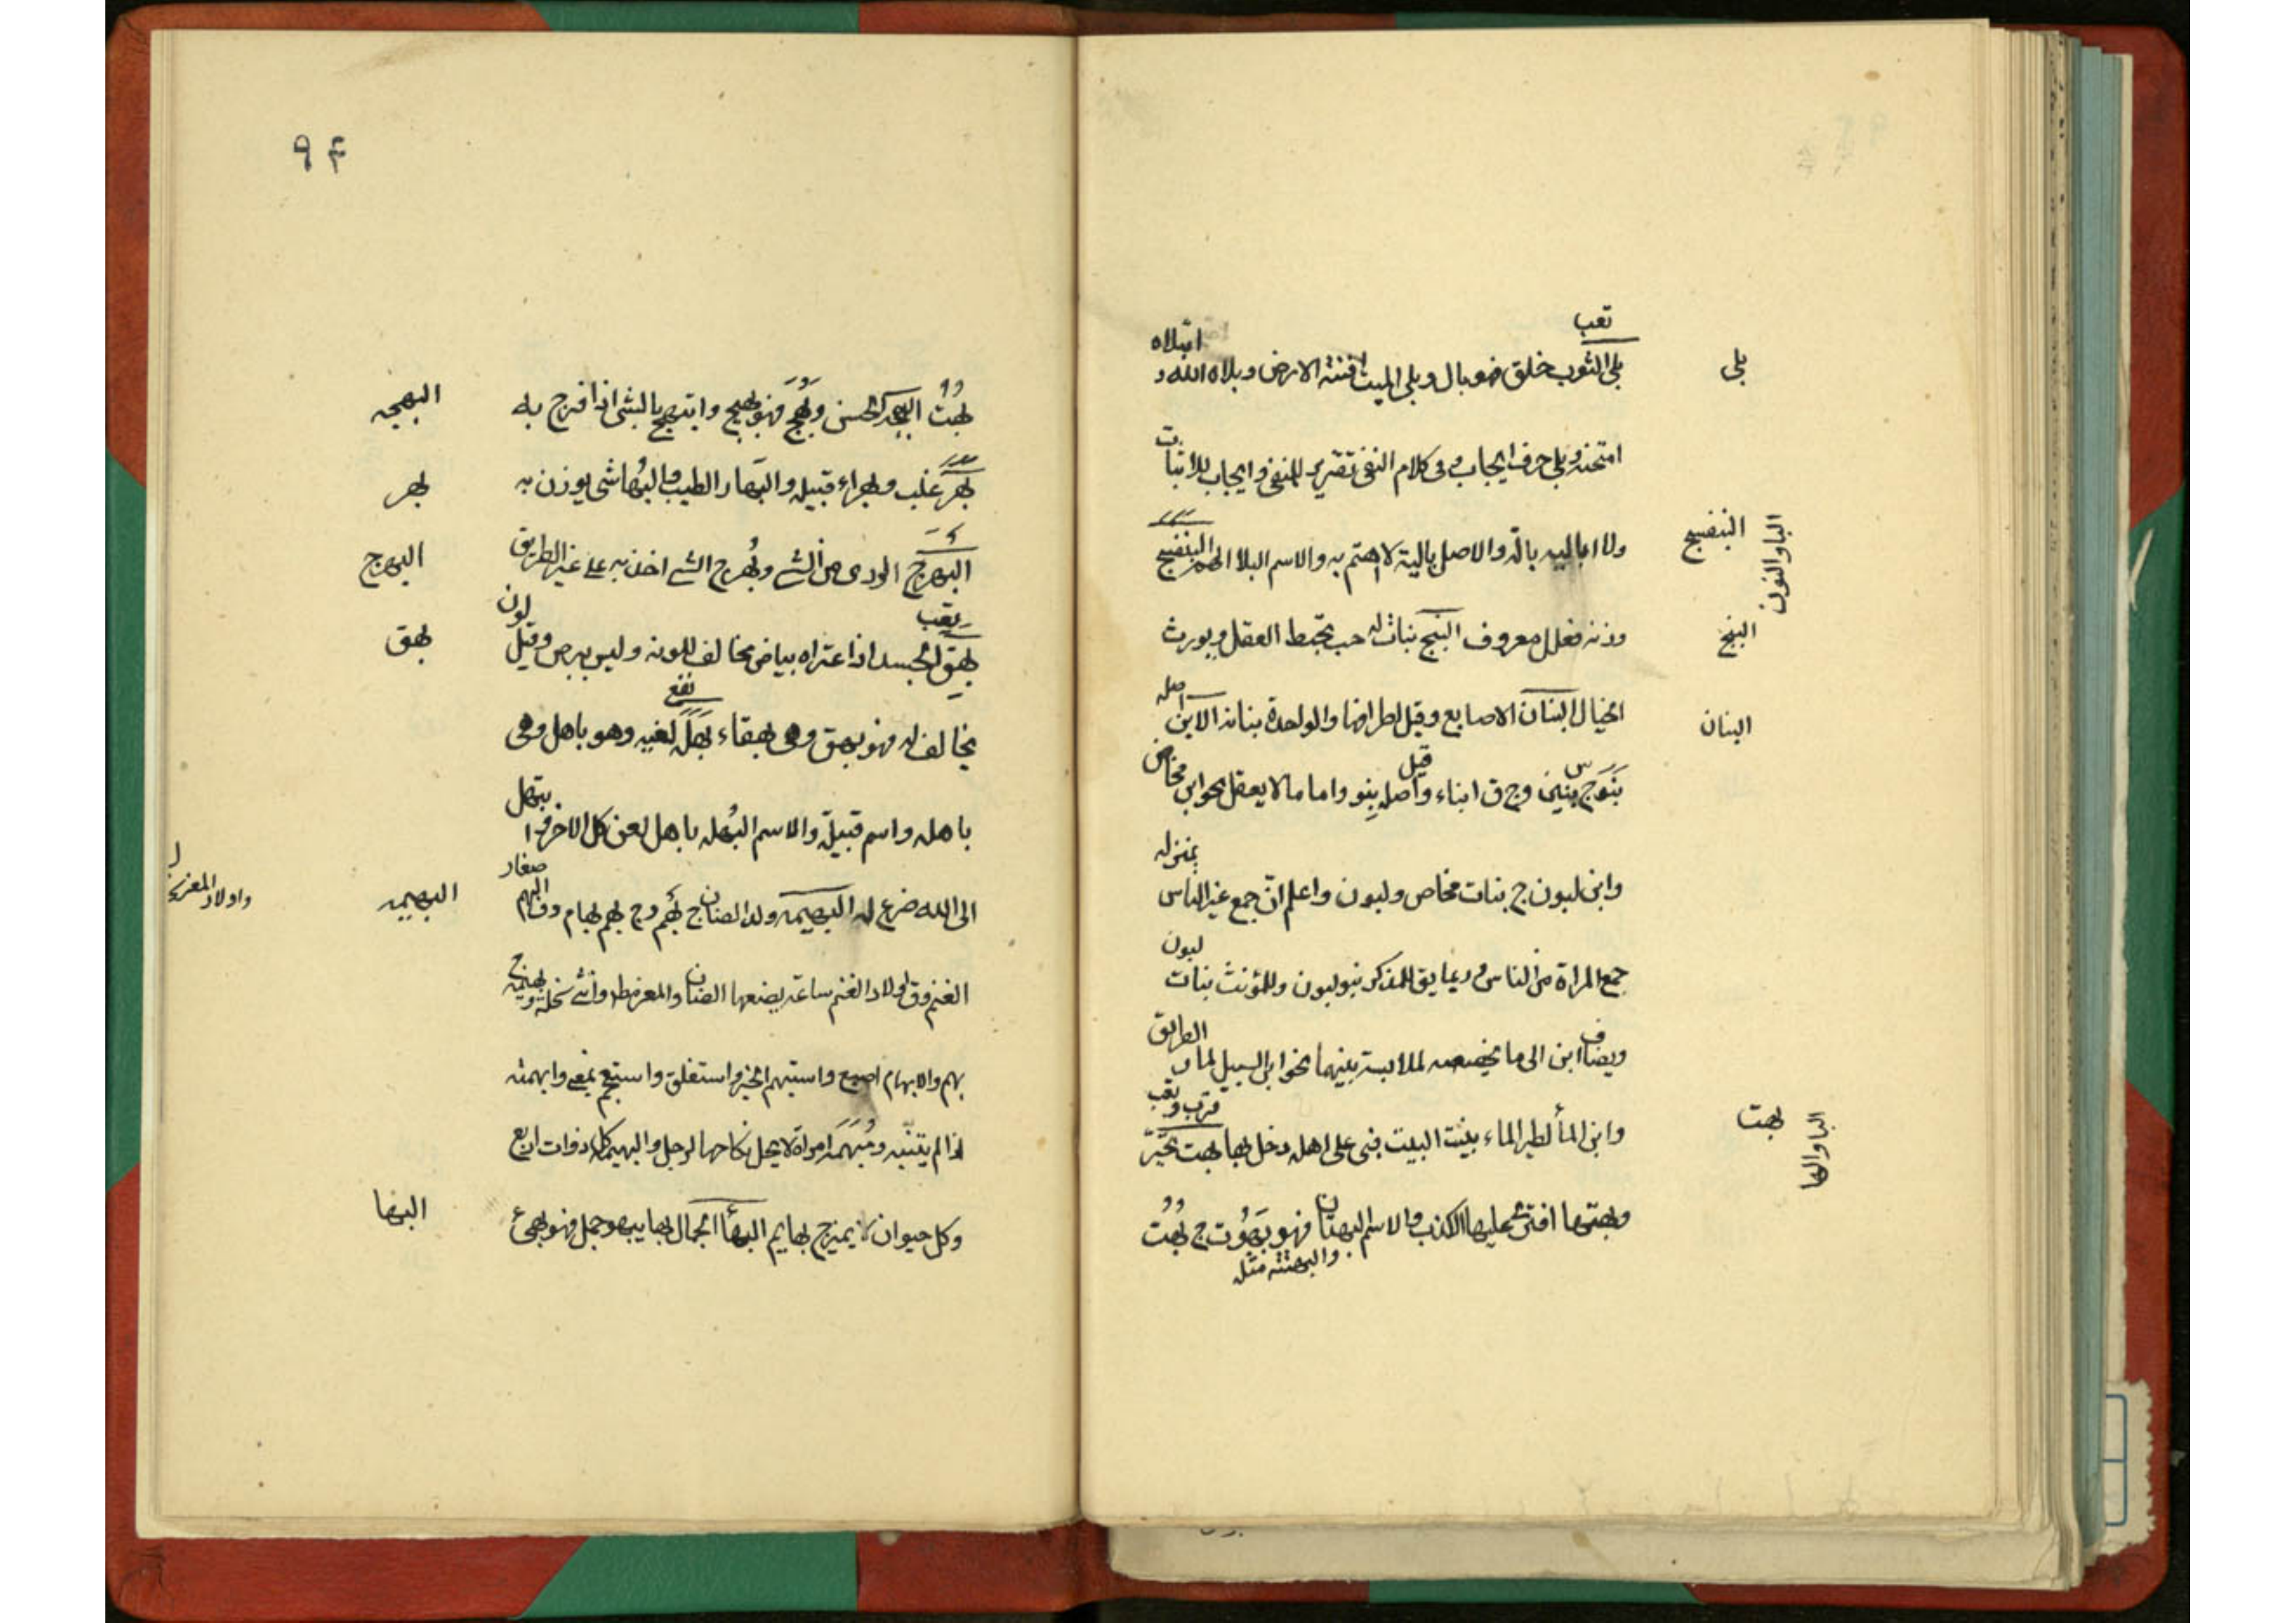 بلى
تعب
بلى الثوب خلق فهو بال وبلى الميت افنته الارض وبلاه الله و
ابتلاه
امتحنه وبلى حرف ايجاب وفى كلام النفى تقرير للنفى وايجاب للاثبات
الباوالنون
البنفسج
ولا اباليه بالة والاصل بالية لا اهتم به والاسم البلا البنفسج
البنج
وزنه فعلل معروف البنج نبات له حب يخبط العقل ويورث
البنان
الخيال البنان الاصابع وقيل اطرافها والواحدة بنانه الابن
اصله
بنو ج بنين وج ق ابناء وقيل اصله بنو واما ما لا يعقل نحو ابن مخاض
وابن لبون ج بنات مخاض ولبون واعلم ان جمع غير الناس
بمنزله
جمع المراة من الناس وربما يق للمذكر بنو لبون وللمؤنث بنات
لبون
ويضاف ابن الى ما يخصصه لملابسة بينهما نحو ابن السبيل لمار
الطريق
الباوالها
بهت
قرب وتعب
وابن الماء لطير الماء بينت البيت بنى على اهله دخل بها بهت تحير
وبهتها افترى عليها الكذب والاسم البهتان فهو بهوت ج بهت
والبهتته مثله
٩۴
البهجه
بهت البهجه كالحسن وبهج فهو بهيج وابتهج بالشى اذا فرح به
بهر
بهر غلب وبهراء قبيله والبهار الطيب والبهار شى يوزن به
البهرج
البهرج الردى من الشى وبهرج الشى اخذ به على غير الطريق
بهق
تعب
بهق الجسد اذا اعتراه بياض مخالف للونه وليس ببرص وقيل لون
نفع
يخالف له فهو بهق وهى بهقاء بهل لعنه وهو باهل وهى
باهله واسم قبيلة والاسم البهله باهل لعن كل الاخر وا
بتهل
البهيمه
الى الله ضرع له البهيمه ولد الضان ج بهم وج بهم بهام وق البهم
صغار
واولاد المعز
الغنم وق لاولاد الغنم ساعة يضعها الضان والمعز سخله
بهم والابهام اصبع واستبهم الخبر واستغلق واستعجم بمعنى وابهمته
اذا لم يتبينه ومبهمه امراة لا يحل نكاحها لرجل والبهيمة كل ذوات اربع
البها
وكل حيوان لا يميز ج بهايم البهاء الجمال بها يبهو جمل فهو بهى